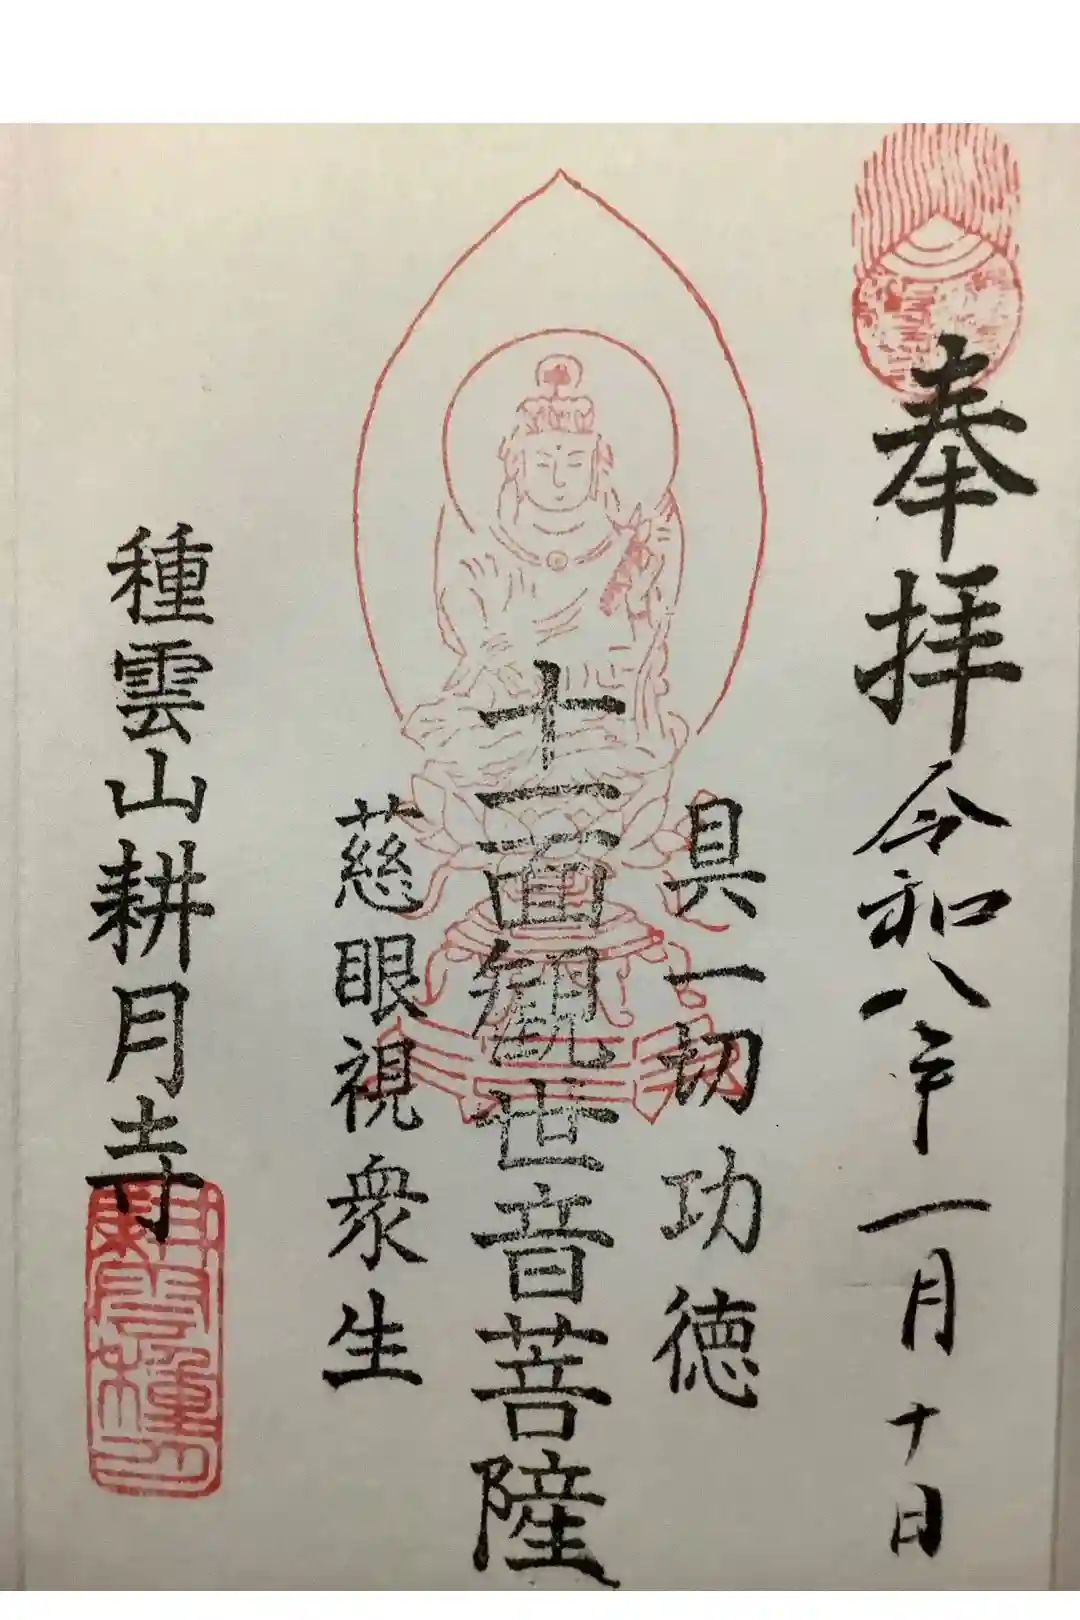 奉拝
令和八年一月十日
具一切功徳
十一面観世音菩薩
慈眼視衆生
種雲山耕月寺